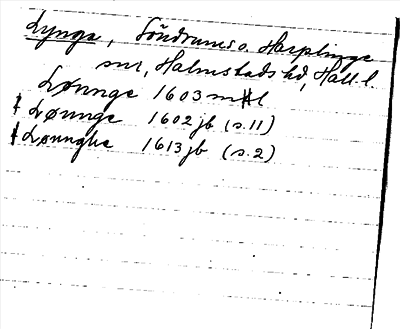 Lynga, Söndrums o. Harplinge
snr, Halmstads hd, Hall. l
Lønnge 1603 mHl
Lønnge 1602 jb (s. 11)
Lønnghe 1613 jb (s. 2)